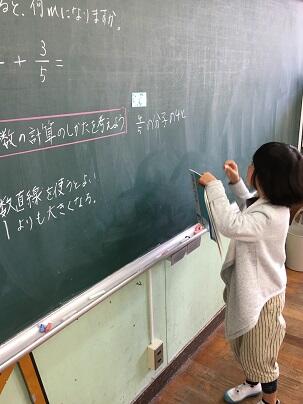 ると、何mになりますか。
+ 3/5 =
数の計算のしかたを考えよう
数直線を使うとよい
1よりも大きくなる。
4/5の分子の4と